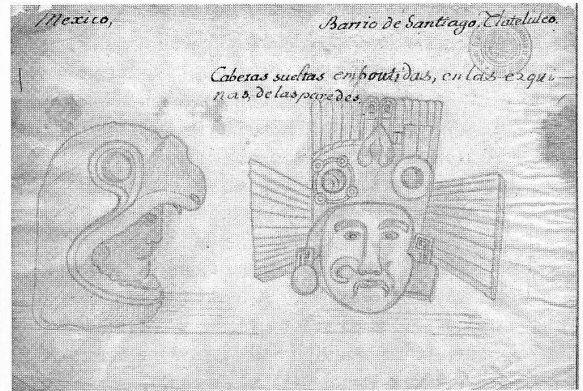 Mexico,
Barrio de Santiago, Tlatelulco.
Cabezas sueltas emboutidas, en las esqui-
nas, de las paredes.